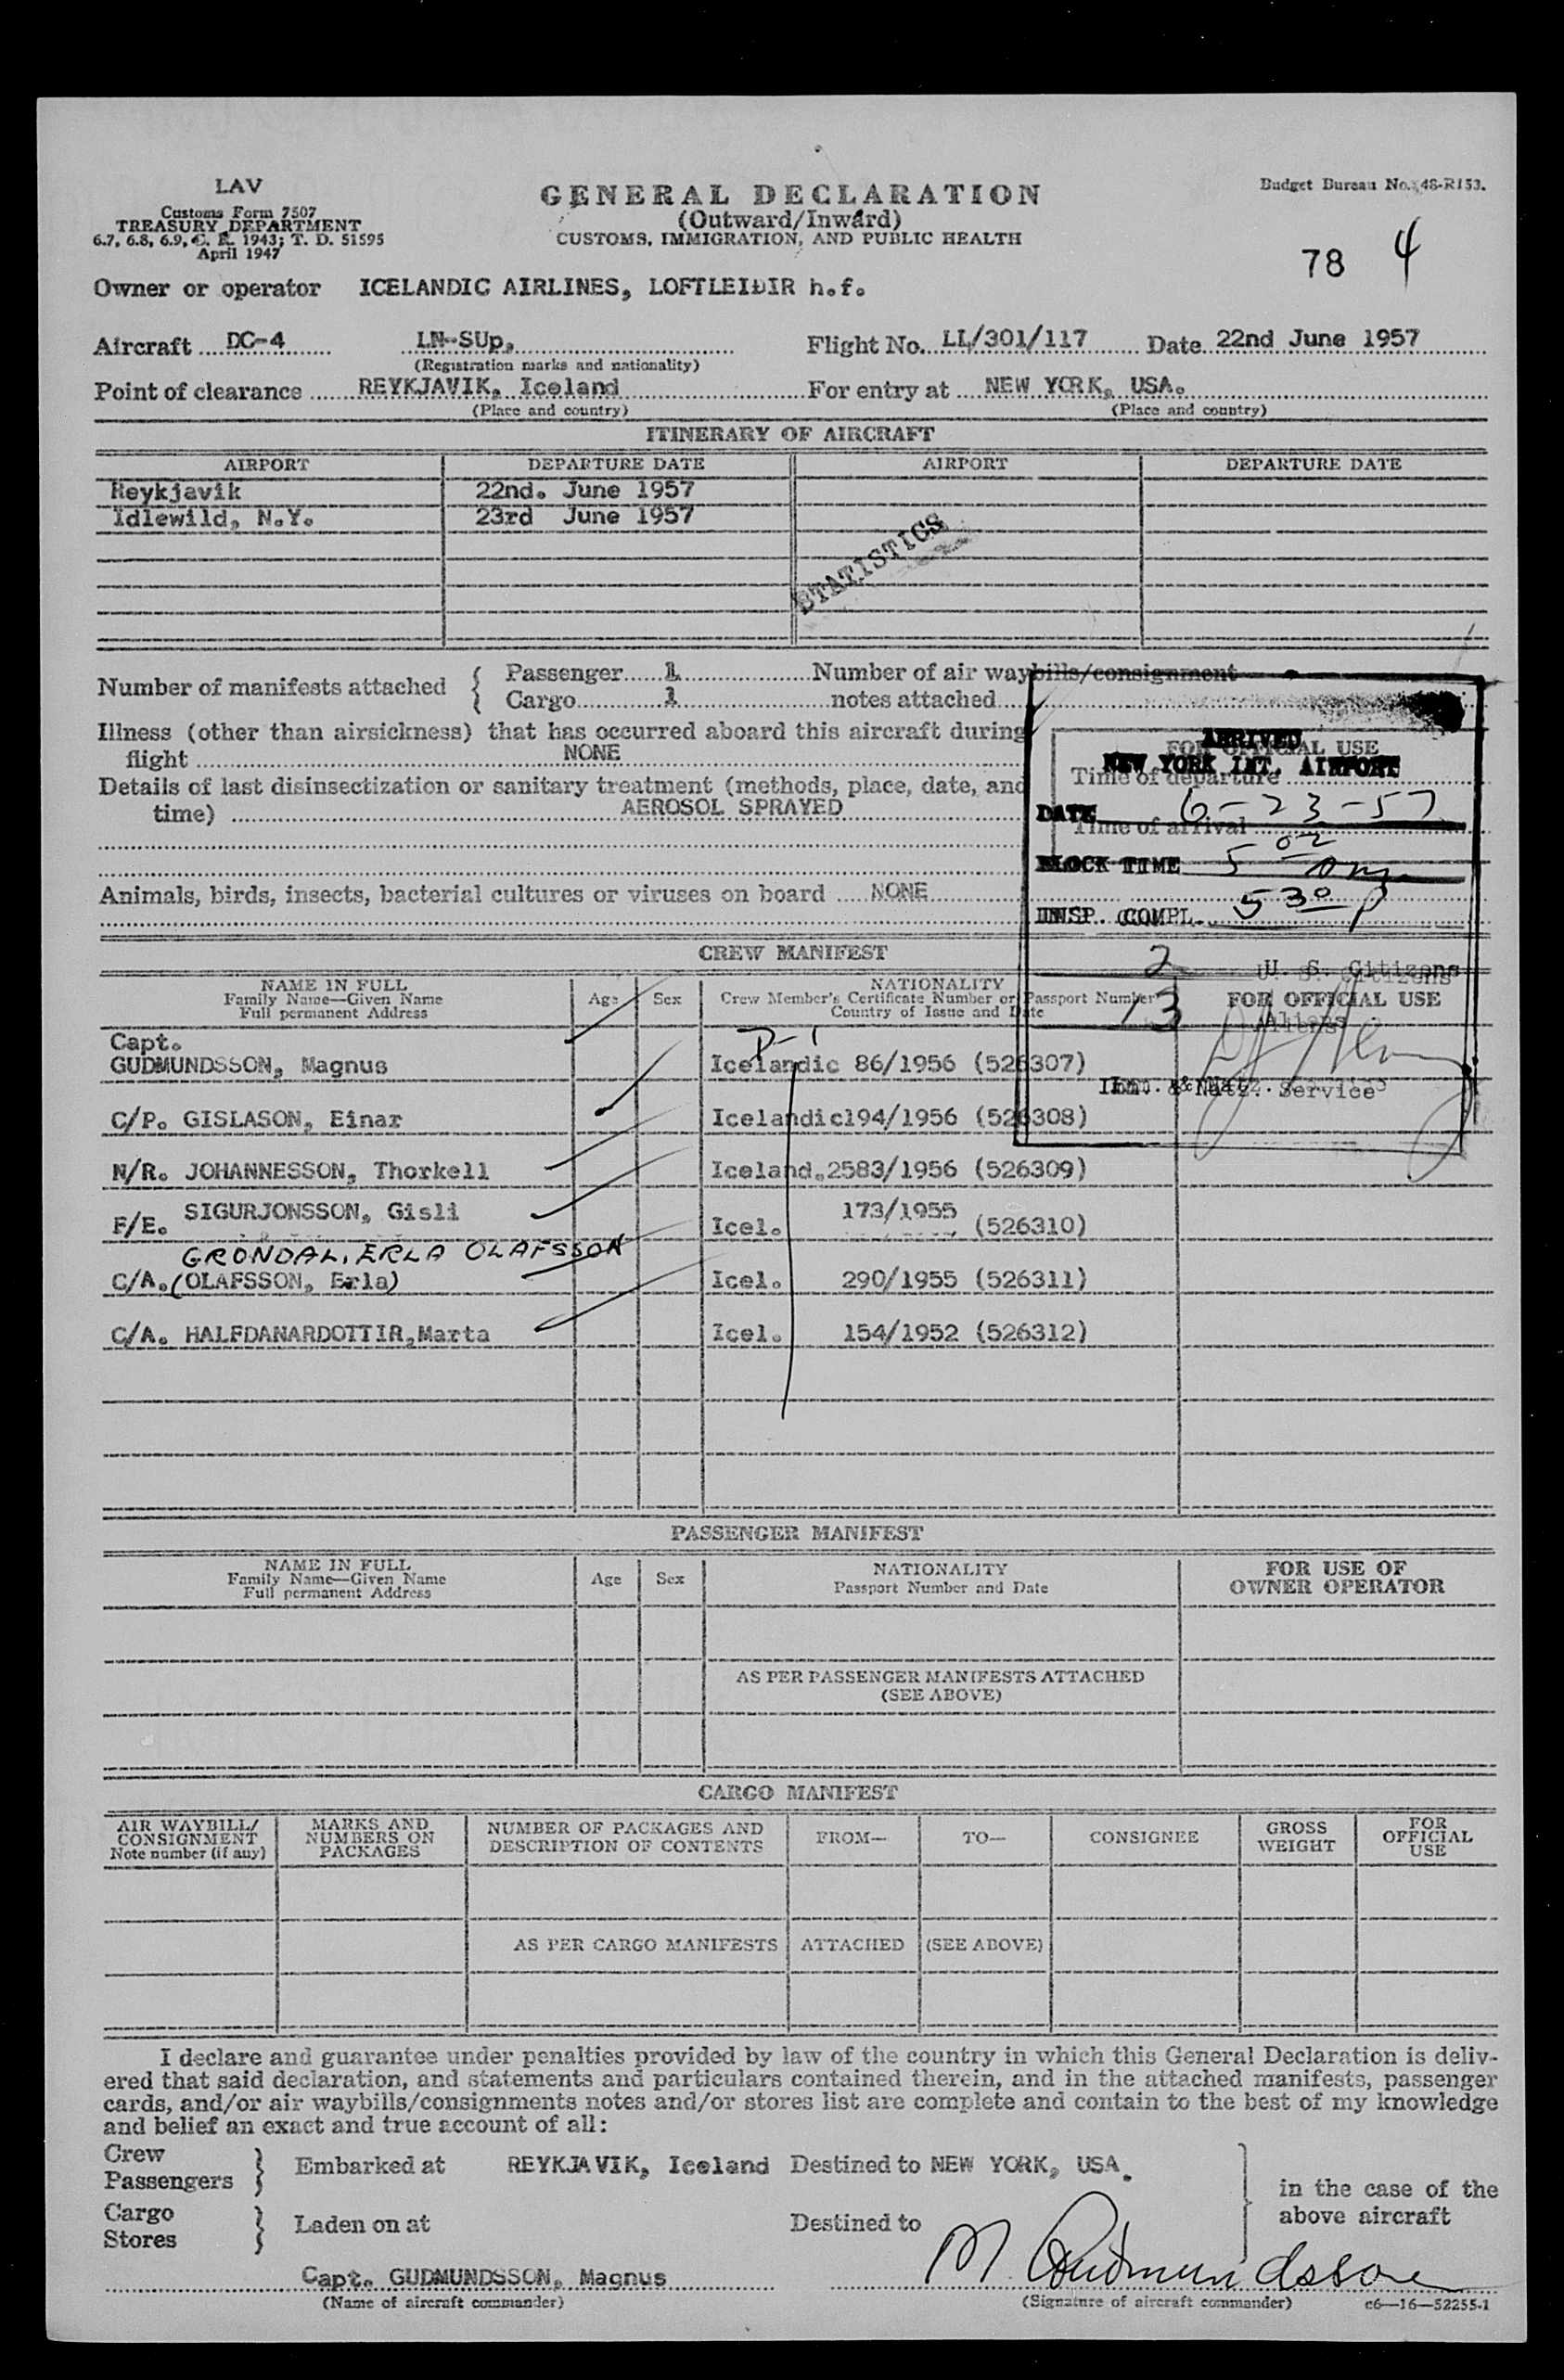 LAV
Customs Form 7507
TREASURY DEPARTMENT
6.7, 6.8, 6.9, C. R. 1943; T. D. 51595
April 1947
GENERAL DECLARATION
(Outward/Inward)
CUSTOMS, IMMIGRATION, AND PUBLIC HEALTH
Budget Bureau No. 48-R153.
78 4
Owner or operator ICELANDIC AIRLINES, LOFTLEIDIR h.f.
Aircraft DC-4 LN-SUp, Flight No. LL/301/117 Date 22nd June 1957
(Registration marks and nationality)
Point of clearance REYKJAVIK, Iceland For entry at NEW YORK, USA.
(Place and country) (Place and country)
ITINERARY OF AIRCRAFT
AIRPORT DEPARTURE DATE AIRPORT DEPARTURE DATE
Reykjavik 22nd. June 1957
Idlewild, N.Y. 23rd June 1957
STATISTICS
Number of manifests attached { Passenger 1 Number of air waybills/consignment
Cargo 1 notes attached
Illness (other than airsickness) that has occurred aboard this aircraft during
flight NONE
Details of last disinsectization or sanitary treatment (methods, place, date, and
time) AEROSOL SPRAYED
Animals, birds, insects, bacterial cultures or viruses on board NONE
FOR OFFICIAL USE
Time of departure
Time of arrival
ARRIVED
NEW YORK INT. AIRPORT
DATE 6-23-57
BLOCK TIME 5 02
INSP. COMPL. 5 30 p
2 U. S. Citizens
13 Aliens
Imm. & Natz. Service
CREW MANIFEST
NAME IN FULL
Family Name—Given Name
Full permanent Address
Age Sex
NATIONALITY
Crew Member's Certificate Number or Passport Number
Country of Issue and Date
FOR OFFICIAL USE
D-1
Capt.
GUDMUNDSSON, Magnus Icelandic 86/1956 (526307)
C/P. GISLASON, Einar Icelandic194/1956 (526308)
N/R. JOHANNESSON, Thorkell Iceland.2583/1956 (526309)
F/E. SIGURJONSSON, Gisli Icel. 173/1955 (526310)
GRONDAL, ERLA OLAFSSON
C/A. (OLAFSSON, Erla) Icel. 290/1955 (526311)
C/A. HALFDANARDOTTIR,Marta Icel. 154/1952 (526312)
PASSENGER MANIFEST
NAME IN FULL
Family Name—Given Name
Full permanent Address
Age Sex
NATIONALITY
Passport Number and Date
FOR USE OF
OWNER OPERATOR
AS PER PASSENGER MANIFESTS ATTACHED
(SEE ABOVE)
CARGO MANIFEST
AIR WAYBILL/
CONSIGNMENT
Note number (if any)
MARKS AND
NUMBERS ON
PACKAGES
NUMBER OF PACKAGES AND
DESCRIPTION OF CONTENTS
FROM— TO— CONSIGNEE
GROSS
WEIGHT
FOR
OFFICIAL
USE
AS PER CARGO MANIFESTS ATTACHED (SEE ABOVE)
I declare and guarantee under penalties provided by law of the country in which this General Declaration is deliv-
ered that said declaration, and statements and particulars contained therein, and in the attached manifests, passenger
cards, and/or air waybills/consignments notes and/or stores list are complete and contain to the best of my knowledge
and belief an exact and true account of all:
Crew
Passengers } Embarked at REYKJAVIK, Iceland Destined to NEW YORK, USA.
Cargo
Stores } Laden on at Destined to
in the case of the
above aircraft
Capt. GUDMUNDSSON, Magnus M. Gudmundsson
(Name of aircraft commander) (Signature of aircraft commander) c6—16—52255-1